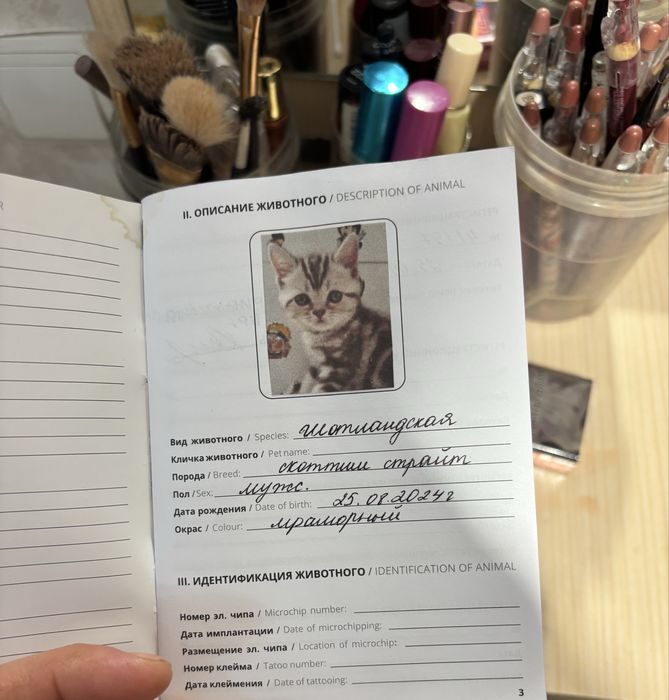 R
II. ОПИСАНИЕ ЖИВОТНОГО / DESCRIPTION OF ANIMAL
Вид животного / Species: шотландская
Кличка животного / Pet name:
Порода / Breed: скоттиш страйт
Пол / Sex: муж.
Дата рождения / Date of birth: 25.08.2024г
Окрас / Colour: мраморный
III. ИДЕНТИФИКАЦИЯ ЖИВОТНОГО / IDENTIFICATION OF ANIMAL
Номер эл. чипа / Microchip number:
Дата имплантации / Date of microchipping:
Размещение эл. чипа / Location of microchip:
Номер клейма / Tatoo number:
Дата клеймения / Date of tattooing:
3